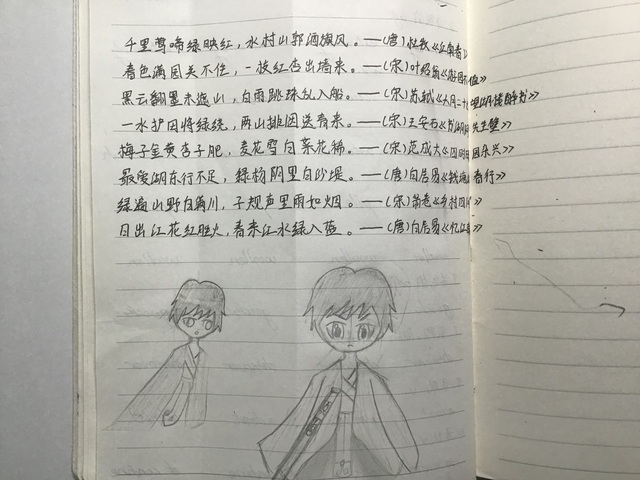 千里莺啼绿映红，水村山郭酒旗风。——（唐）杜牧《江南春》
春色满园关不住，一枝红杏出墙来。——（宋）叶绍翁《游园不值》
黑云翻墨未遮山，白雨跳珠乱入船。——（宋）苏轼《六月二十七望湖楼醉书》
一水护田将绿绕，两山排闼送青来。——（宋）王安石《书湖阴先生壁》
梅子金黄杏子肥，麦花雪白菜花稀。——（宋）范成大《四时田园杂兴》
最爱湖东行不足，绿杨阴里白沙堤。——（唐）白居易《钱塘湖春行》
绿遍山野白满川，子规声里雨如烟。——（宋）翁卷《乡村四月》
日出江花红胜火，春来江水绿入蓝。——（唐）白居易《忆江南》